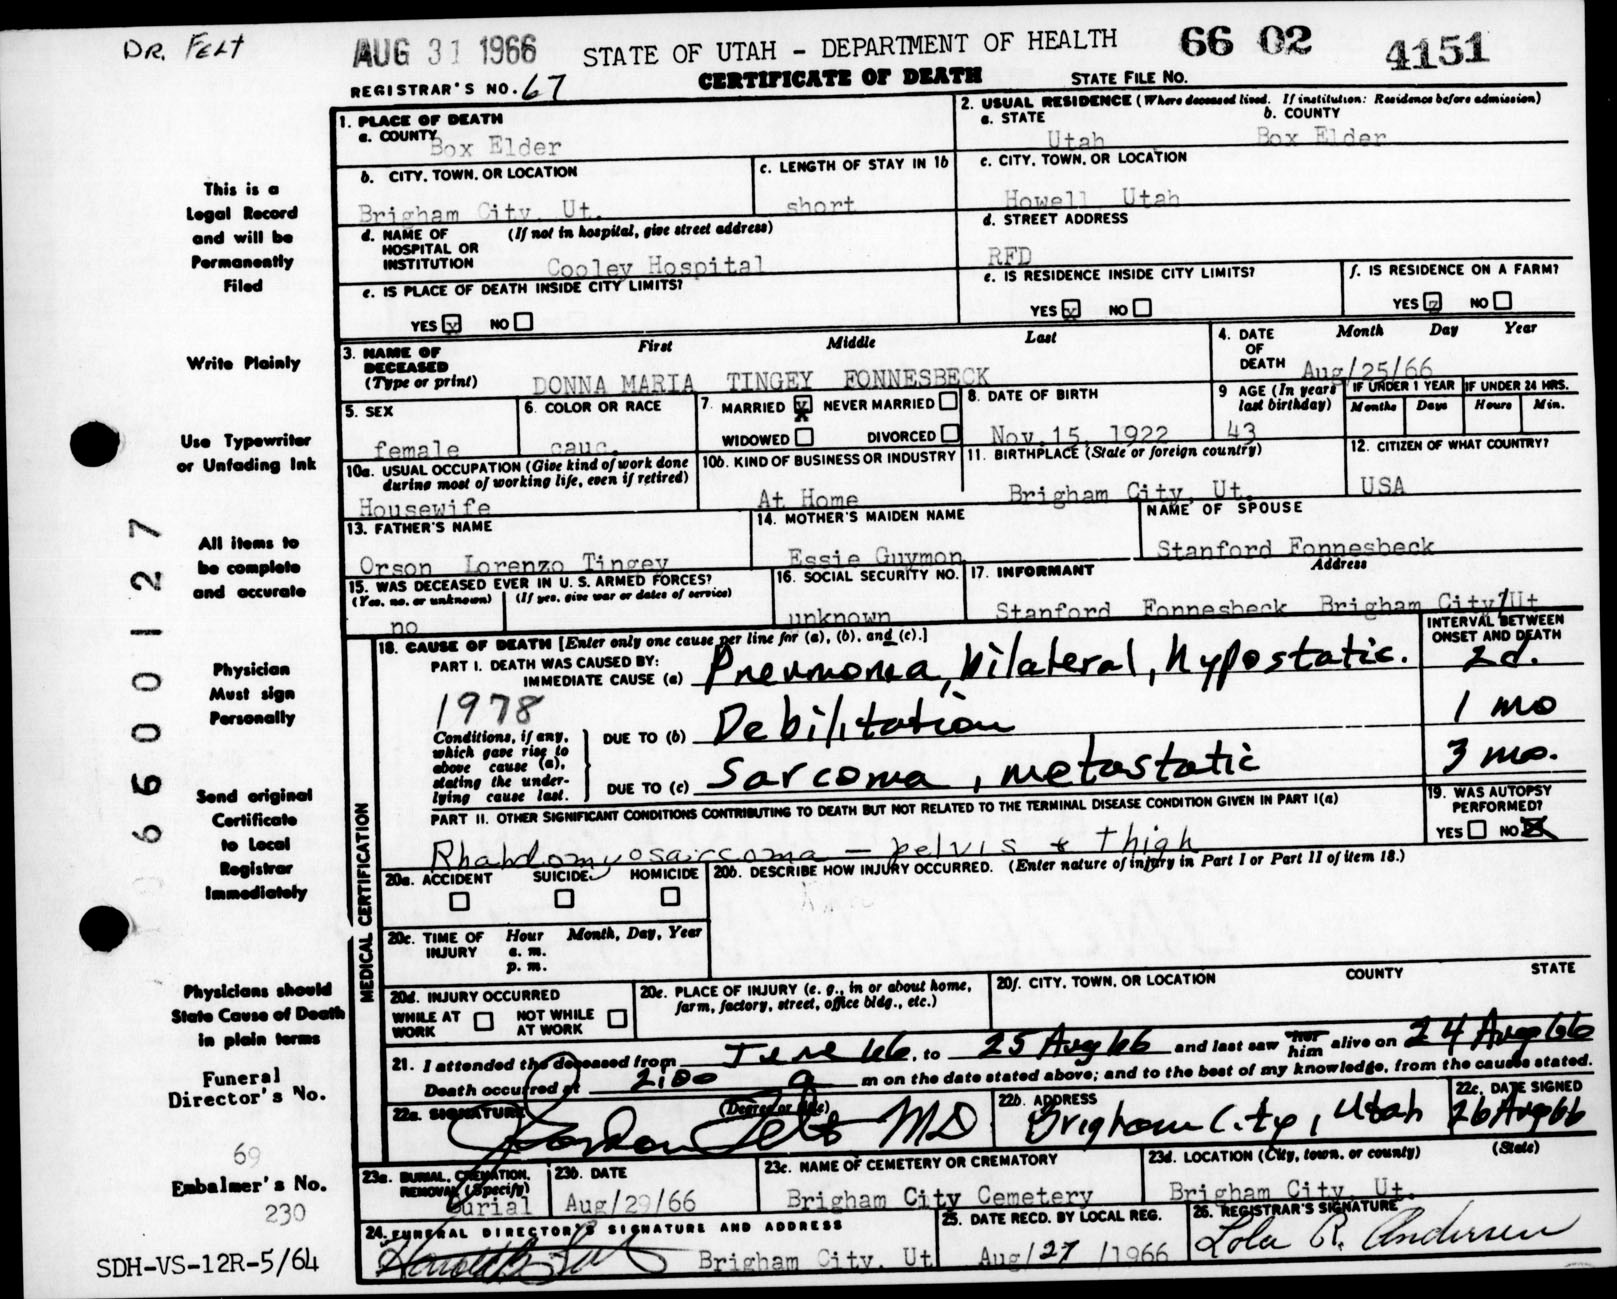 DR. FELT
AUG 31 1966 STATE OF UTAH - DEPARTMENT OF HEALTH 66 02 4151
REGISTRAR'S NO. 67 CERTIFICATE OF DEATH STATE FILE No.
1. PLACE OF DEATH
a. COUNTY
Box Elder
2. USUAL RESIDENCE (Where deceased lived. If institution: Residence before admission)
a. STATE b. COUNTY
Utah Box Elder
b. CITY, TOWN, OR LOCATION
Brigham City, Ut.
c. LENGTH OF STAY IN 1b
short
c. CITY, TOWN, OR LOCATION
Howell Utah
d. NAME OF HOSPITAL OR INSTITUTION (If not in hospital, give street address)
Cooley Hospital
d. STREET ADDRESS
RFD
e. IS PLACE OF DEATH INSIDE CITY LIMITS?
YES x NO
e. IS RESIDENCE INSIDE CITY LIMITS?
YES x NO
f. IS RESIDENCE ON A FARM?
YES NO
3. NAME OF DECEASED (Type or print) First Middle Last
DONNA MARIA TINGEY FONNESBECK
4. DATE OF DEATH Month Day Year
Aug/25/66
5. SEX
female
6. COLOR OR RACE
cauc.
7. MARRIED X NEVER MARRIED
WIDOWED DIVORCED
8. DATE OF BIRTH
Nov.15, 1922
9 AGE (In years last birthday)
43
IF UNDER 1 YEAR IF UNDER 24 HRS.
Months Days Hours Min.
10a. USUAL OCCUPATION (Give kind of work done during most of working life, even if retired)
Housewife
10b. KIND OF BUSINESS OR INDUSTRY
At Home
11. BIRTHPLACE (State or foreign country)
Brigham City, Ut.
12. CITIZEN OF WHAT COUNTRY?
USA
13. FATHER'S NAME
Orson Lorenzo Tingey
14. MOTHER'S MAIDEN NAME
Essie Guymon
NAME OF SPOUSE
Stanford Fonnesbeck
15. WAS DECEASED EVER IN U. S. ARMED FORCES?
(Yes, no, or unknown) (If yes, give war or dates of service)
no
16. SOCIAL SECURITY NO.
unknown
17. INFORMANT Address
Stanford Fonnesbeck Brigham City, Ut
MEDICAL CERTIFICATION
18. CAUSE OF DEATH [Enter only one cause per line for (a), (b), and (c).]
INTERVAL BETWEEN ONSET AND DEATH
PART I. DEATH WAS CAUSED BY:
IMMEDIATE CAUSE (a) Pneumonia, bilateral, hypostatic. 2d.
1978
Conditions, if any, which gave rise to above cause (a), stating the underlying cause last.
DUE TO (b) Debilitation 1 mo
DUE TO (c) Sarcoma, metastatic 3 mo.
PART II. OTHER SIGNIFICANT CONDITIONS CONTRIBUTING TO DEATH BUT NOT RELATED TO THE TERMINAL DISEASE CONDITION GIVEN IN PART I(a)
Rhabdomyosarcoma - pelvis & thigh
19. WAS AUTOPSY PERFORMED?
YES NO X
20a. ACCIDENT SUICIDE HOMICIDE
20b. DESCRIBE HOW INJURY OCCURRED. (Enter nature of injury in Part I or Part II of item 18.)
20c. TIME OF INJURY Hour Month, Day, Year
a. m.
p. m.
20d. INJURY OCCURRED
WHILE AT WORK NOT WHILE AT WORK
20e. PLACE OF INJURY (e. g., in or about home, farm, factory, street, office bldg., etc.)
20f. CITY, TOWN, OR LOCATION COUNTY STATE
21. I attended the deceased from June 66, to 25 Aug 66 and last saw her him alive on 24 Aug 66
Death occurred at 2:00 a m on the date stated above; and to the best of my knowledge, from the causes stated.
22a. SIGNATURE (Degree or title)
Gordon Felt MD
22b. ADDRESS
Brigham City, Utah
22c. DATE SIGNED
26 Aug 66
23a. BURIAL, CREMATION, REMOVAL (Specify)
Burial
23b. DATE
Aug/29/66
23c. NAME OF CEMETERY OR CREMATORY
Brigham City Cemetery
23d. LOCATION (City, town, or county) (State)
Brigham City, Ut.
24. FUNERAL DIRECTOR'S SIGNATURE AND ADDRESS
Brigham City, Ut
25. DATE RECD. BY LOCAL REG.
Aug/27/1966
26. REGISTRAR'S SIGNATURE
Lola R. Andersen
This is a
Legal Record
and will be
Permanently
Filed
Write Plainly
Use Typewriter
or Unfading Ink
All items to
be complete
and accurate
Physician
Must sign
Personally
Send original
Certificate
to Local
Registrar
Immediately
Physicians should
State Cause of Death
in plain terms
Funeral
Director's No.
69
Embalmer's No.
230
SDH-VS-12R-5/64
6600127